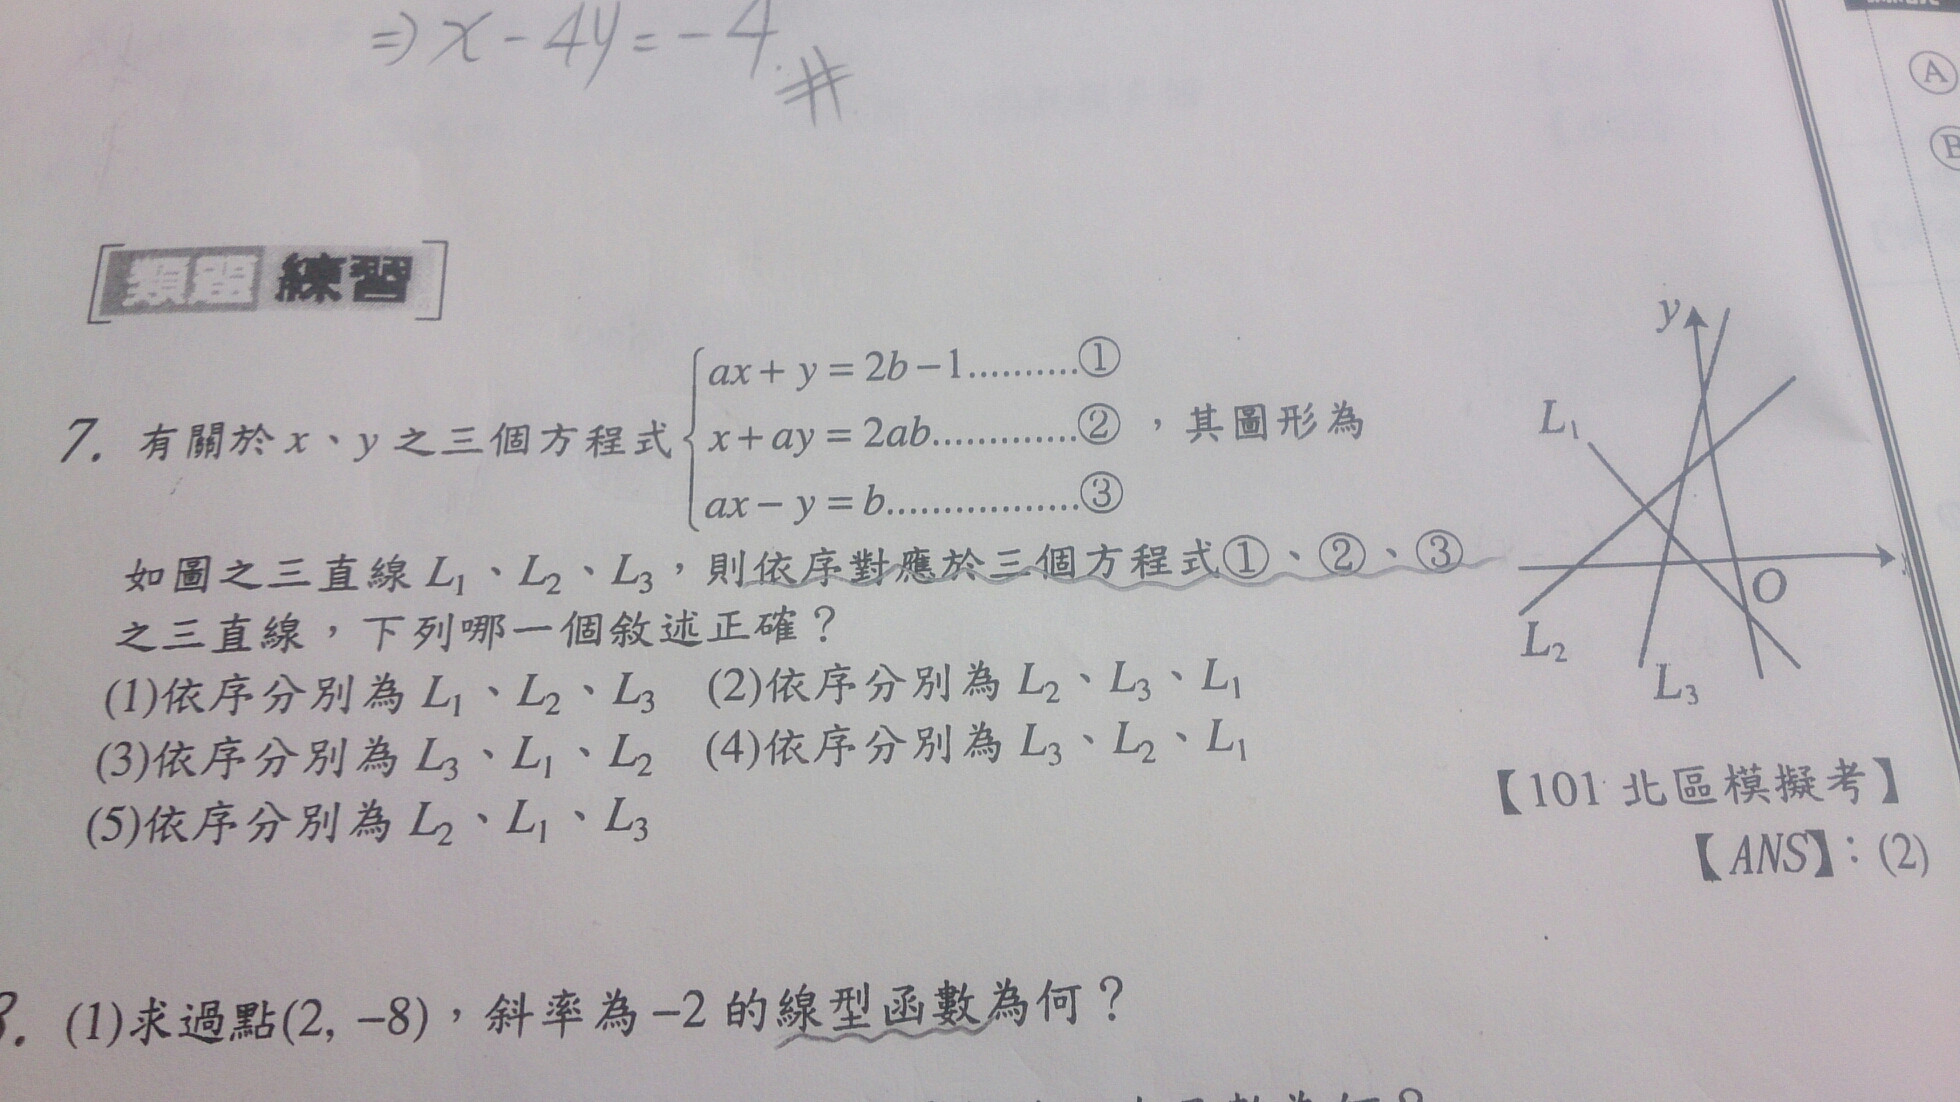 ⇒ x - 4y = -4 #
類題 練習
7. 有關於 x、y 之三個方程式
ax + y = 2b − 1..........①
x + ay = 2ab.............②
ax − y = b..................③
，其圖形為
如圖之三直線 L₁、L₂、L₃，則依序對應於三個方程式①、②、③
之三直線，下列哪一個敘述正確？
(1)依序分別為 L₁、L₂、L₃ (2)依序分別為 L₂、L₃、L₁
(3)依序分別為 L₃、L₁、L₂ (4)依序分別為 L₃、L₂、L₁
(5)依序分別為 L₂、L₁、L₃
y
L₁
O
L₂
L₃
【101 北區模擬考】
【ANS】：(2)
(1)求過點(2, −8)，斜率為 −2 的線型函數為何？
Ⓐ
Ⓑ